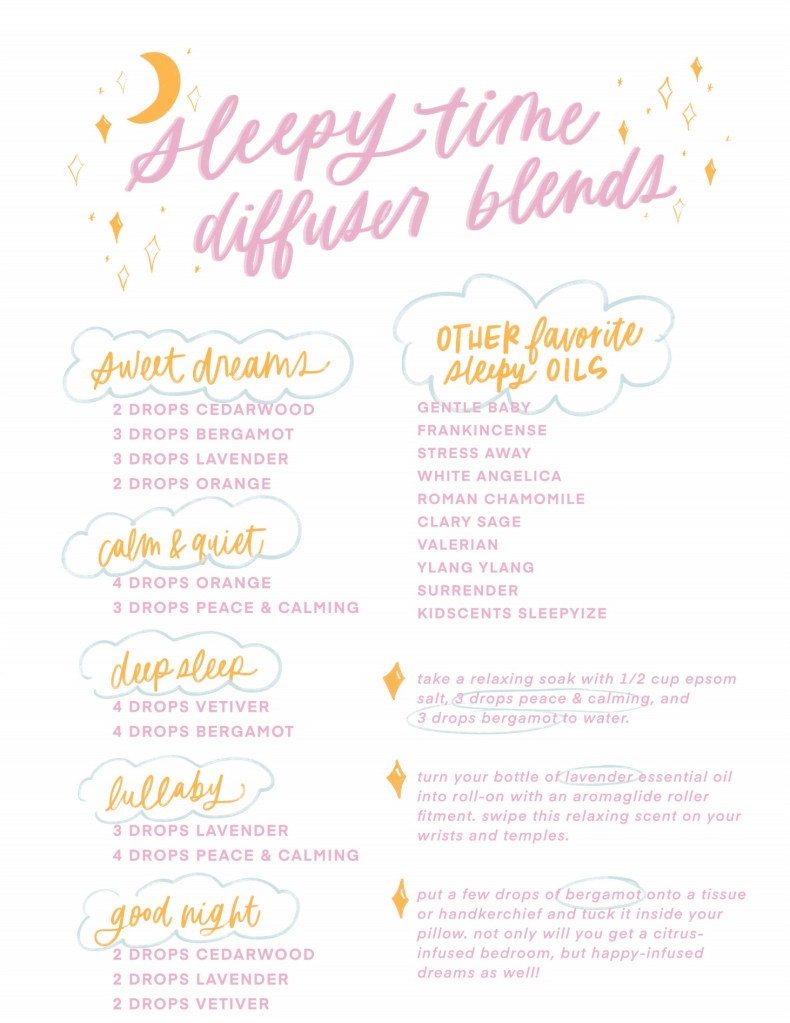 sleepy time
diffuser blends
sweet dreams
2 DROPS CEDARWOOD
3 DROPS BERGAMOT
3 DROPS LAVENDER
2 DROPS ORANGE
calm & quiet
4 DROPS ORANGE
3 DROPS PEACE & CALMING
deep sleep
4 DROPS VETIVER
4 DROPS BERGAMOT
lullaby
3 DROPS LAVENDER
4 DROPS PEACE & CALMING
good night
2 DROPS CEDARWOOD
2 DROPS LAVENDER
2 DROPS VETIVER
OTHER favorite
sleepy OILS
GENTLE BABY
FRANKINCENSE
STRESS AWAY
WHITE ANGELICA
ROMAN CHAMOMILE
CLARY SAGE
VALERIAN
YLANG YLANG
SURRENDER
KIDSCENTS SLEEPYIZE
take a relaxing soak with 1/2 cup epsom
salt, 3 drops peace & calming, and
3 drops bergamot to water.
turn your bottle of lavender essential oil
into roll-on with an aromaglide roller
fitment. swipe this relaxing scent on your
wrists and temples.
put a few drops of bergamot onto a tissue
or handkerchief and tuck it inside your
pillow. not only will you get a citrus-
infused bedroom, but happy-infused
dreams as well!